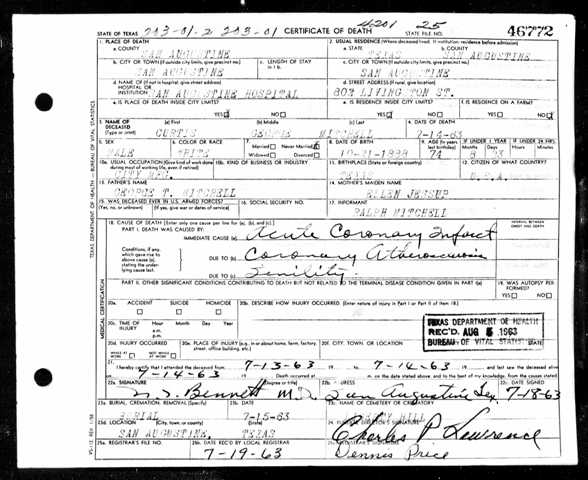 4201 25
STATE OF TEXAS 203-01-2 203-01 CERTIFICATE OF DEATH STATE FILE NO. 46772
1. PLACE OF DEATH 2. USUAL RESIDENCE (Where deceased lived. If institution: residence before admission)
a. COUNTY SAN AUGUSTINE a. STATE TEXAS b. COUNTY SAN AUGUSTINE
b. CITY OR TOWN (If outside city limits, give precinct no.) c. LENGTH OF STAY c. CITY OR TOWN (If outside city limits, give precinct no.)
SAN AUGUSTINE SAN AUGUSTINE
d. NAME OF (If not in hospital, give street address) d. STREET ADDRESS (If rural, give location)
HOSPITAL OR INSTITUTION SAN AUGUSTINE HOSPITAL 803 LIVINGTON ST.
e. IS PLACE OF DEATH INSIDE CITY LIMITS? e. IS RESIDENCE INSIDE CITY LIMITS? f. IS RESIDENCE ON A FARM?
YES NO YES NO YES NO
3. NAME OF DECEASED (a) First (b) Middle (c) Last 4. DATE OF DEATH
(Type or print) CURTIS GEORGE MITCHELL 7-14-63
5. SEX 6. COLOR OR RACE 7. Married Never Married 8. DATE OF BIRTH 9. AGE (In years last birthday) IF UNDER 1 YEAR IF UNDER 24 HRS.
MALE WHITE Widowed Divorced 74
10a. USUAL OCCUPATION (Give kind of work done during most of working life, even if retired) 10b. KIND OF BUSINESS OR INDUSTRY 11. BIRTHPLACE (State or foreign country) 12. CITIZEN OF WHAT COUNTRY?
TEXAS U.S.A.
13. FATHER'S NAME 14. MOTHER'S MAIDEN NAME
GEORGE T. MITCHELL JESSUP
15. WAS DECEASED EVER IN U.S. ARMED FORCES? 16. SOCIAL SECURITY NO. 17. INFORMANT
(Yes, no, or unknown) (If yes, give war or dates of service) RALPH MITCHELL
18. CAUSE OF DEATH (Enter only one cause per line for (a), (b), and (c).) INTERVAL BETWEEN ONSET AND DEATH
PART I. DEATH WAS CAUSED BY:
IMMEDIATE CAUSE (a) Acute Coronary Infact
Conditions, if any, which gave rise to above cause (a), stating the underlying cause last.
DUE TO (b) Coronary Atherosclerosis
DUE TO (c) Senility
PART II. OTHER SIGNIFICANT CONDITIONS CONTRIBUTING TO DEATH BUT NOT RELATED TO THE TERMINAL DISEASE CONDITION GIVEN IN PART I(a) 19. WAS AUTOPSY PERFORMED?
YES NO
20a. ACCIDENT SUICIDE HOMICIDE 20b. DESCRIBE HOW INJURY OCCURRED (Enter nature of injury in Part I or Part II of item 18)
20c. TIME OF INJURY Hour Month Day Year
a.m.
p.m.
TEXAS DEPARTMENT OF HEALTH
REC'D. AUG 1963
BUREAU OF VITAL STATISTICS
20d. INJURY OCCURRED 20e. PLACE OF INJURY (e.g., in or about home, farm, factory, street, office building, etc.) 20f. CITY, TOWN, OR LOCATION COUNTY STATE
WHILE AT WORK NOT WHILE AT WORK
21. I hereby certify that I attended the deceased from 7-13-63 to 7-14-63 and last saw the deceased alive
on 7-14-63 Death occurred at m. on the date stated above, and to the best of my knowledge, from the causes stated.
22a. SIGNATURE (Degree or title) 22b. ADDRESS 22c. DATE SIGNED
Bennett M.D. San Augustine Tex 7-18-63
23a. BURIAL, CREMATION, REMOVAL (Specify) 23b. DATE 23c. NAME OF CEMETERY OR CREMATORY
BURIAL 7-15-63 HILL
23d. LOCATION 24. FUNERAL DIRECTOR'S SIGNATURE
SAN AUGUSTINE, TEXAS Charles P. Lawrence
25a. REGISTRAR'S FILE NO. 25b. DATE REC'D BY LOCAL REGISTRAR
7-19-63 Dennis Price
TEXAS DEPARTMENT OF HEALTH - BUREAU OF VITAL STATISTICS
MEDICAL CERTIFICATION